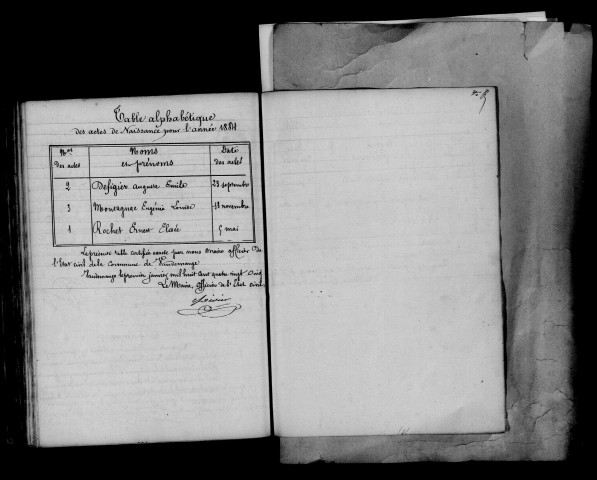 Table alphabétique
des actes de Naissance pour l'année 1881
Nos des actes | Noms et prénoms | Date des actes
2 | Defigier Auguste Emile | 23 septembre
3 | Montagnac Eugénie Louise | 18 novembre
1 | Rochet Ernest Elaïé | 5 mai
La présente table certifiée exacte par nous Maire officier de
l'Etat civil de la commune de Vaudemange
Vaudemange le premier janvier mil huit cent quatre vingt
Le Maire, officier de l'Etat civil